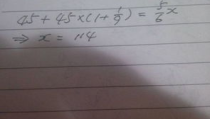 45 + 45 × (1 + 1/9) = 5/6 x
⇒ x = 114